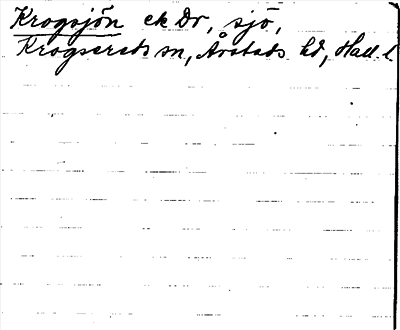 Krogsjön ek Dr, sjö,
Krogsereds sn, Årstads hd, Hall l